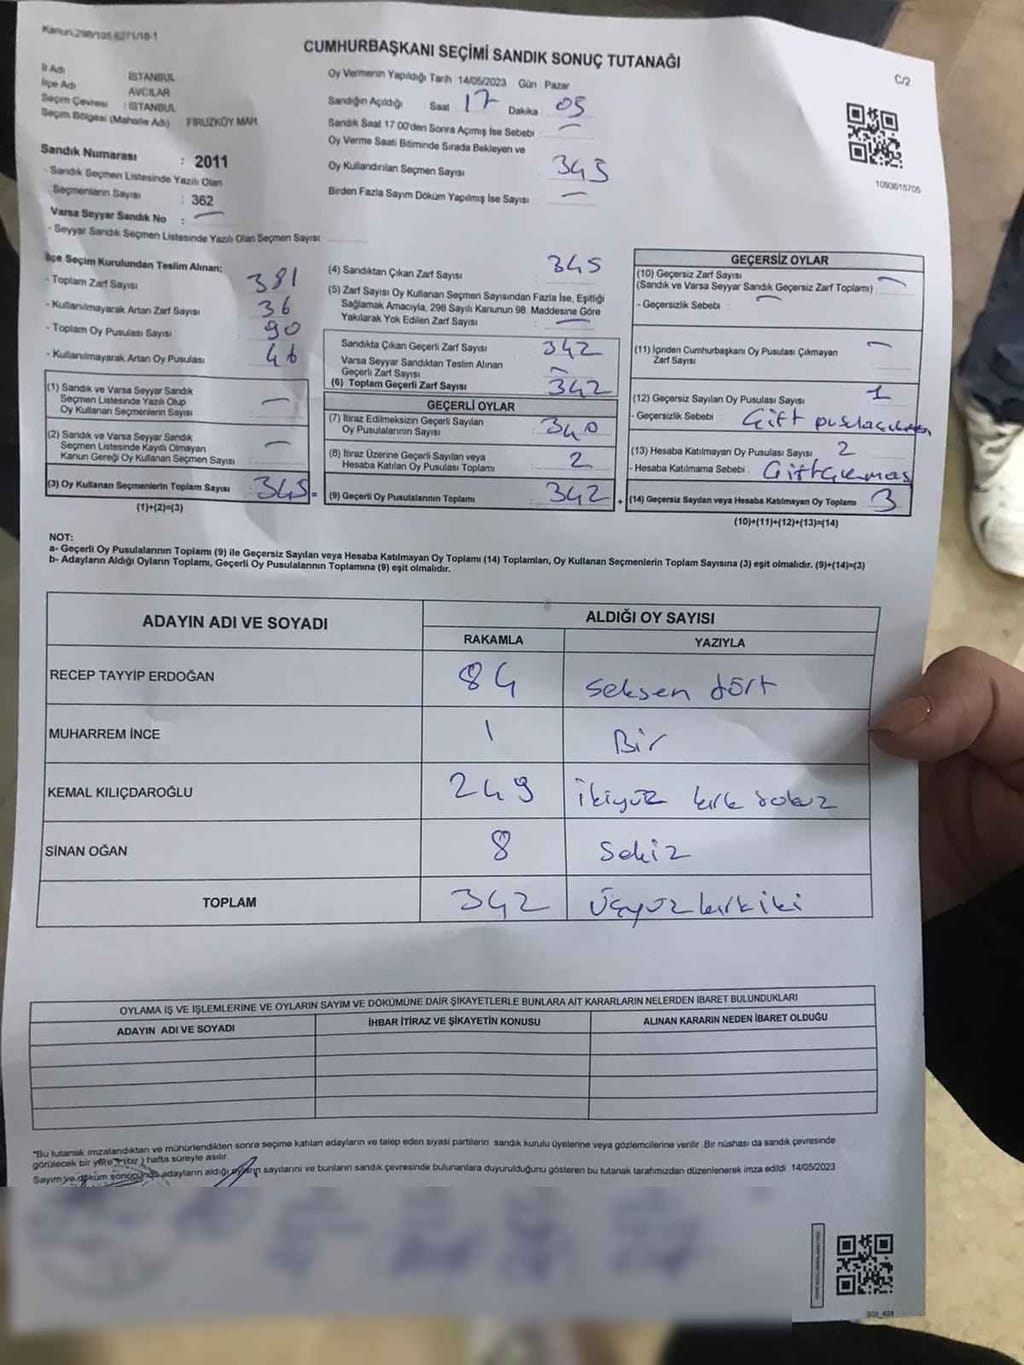 Kanun.298/105.6271/18-1
CUMHURBAŞKANI SEÇİMİ SANDIK SONUÇ TUTANAĞI
C/2
İl Adı İSTANBUL
İlçe Adı AVCILAR
Seçim Çevresi : İSTANBUL
Seçim Bölgesi (Mahalle Adı) FİRUZKÖY MAH.
Sandık Numarası : 2011
- Sandık Seçmen Listesinde Yazılı Olan
Seçmenlerin Sayısı : 362
Varsa Seyyar Sandık No : —
- Seyyar Sandık Seçmen Listesinde Yazılı Olan Seçmen Sayısı
Oy Vermenin Yapıldığı Tarih 14/05/2023 Gün Pazar
Sandığın Açıldığı Saat 17 Dakika 05
Sandık Saat 17:00'den Sonra Açımış İse Sebebi —
Oy Verme Saati Bitiminde Sırada Bekleyen ve
Oy Kullandırılan Seçmen Sayısı 345
Birden Fazla Sayım Döküm Yapılmış İse Sayısı —
1093615705
İlçe Seçim Kurulundan Teslim Alınan:
- Toplam Zarf Sayısı 381
- Kullanılmayarak Artan Zarf Sayısı 36
- Toplam Oy Pusulası Sayısı 90
- Kullanılmayarak Artan Oy Pusulası 46
(1) Sandık ve Varsa Seyyar Sandık
Seçmen Listesinde Yazılı Olup
Oy Kullanan Seçmenlerin Sayısı —
(2) Sandık ve Varsa Seyyar Sandık
Seçmen Listesinde Kayıtlı Olmayan
Kanun Gereği Oy Kullanan Seçmen Sayısı —
(3) Oy Kullanan Seçmenlerin Toplam Sayısı 345 =
(1)+(2)=(3)
(4) Sandıktan Çıkan Zarf Sayısı 345
(5) Zarf Sayısı Oy Kullanan Seçmen Sayısından Fazla İse, Eşitliği
Sağlamak Amacıyla, 298 Sayılı Kanunun 98. Maddesine Göre
Yakılarak Yok Edilen Zarf Sayısı —
Sandıkta Çıkan Geçerli Zarf Sayısı 342
Varsa Seyyar Sandıktan Teslim Alınan
Geçerli Zarf Sayısı —
(6) Toplam Geçerli Zarf Sayısı 342
GEÇERLİ OYLAR
(7) İtiraz Edilmeksizin Geçerli Sayılan
Oy Pusulalarının Sayısı 340
(8) İtiraz Üzerine Geçerli Sayılan veya
Hesaba Katılan Oy Pusulası Toplamı 2
(9) Geçerli Oy Pusulalarının Toplamı 342 +
GEÇERSİZ OYLAR
(10) Geçersiz Zarf Sayısı
(Sandık ve Varsa Seyyar Sandık Geçersiz Zarf Toplamı) —
- Geçersizlik Sebebi —
(11) İçinden Cumhurbaşkanı Oy Pusulası Çıkmayan
Zarf Sayısı —
(12) Geçersiz Sayılan Oy Pusulası Sayısı 1
- Geçersizlik Sebebi Çift pusla
(13) Hesaba Katılmayan Oy Pusulası Sayısı 2
- Hesaba Katılmama Sebebi Çift Çıkması
(14) Geçersiz Sayılan veya Hesaba Katılmayan Oy Toplamı 3
(10)+(11)+(12)+(13)=(14)
NOT:
a- Geçerli Oy Pusulalarının Toplamı (9) ile Geçersiz Sayılan veya Hesaba Katılmayan Oy Toplamı (14) Toplamları, Oy Kullanan Seçmenlerin Toplam Sayısına (3) eşit olmalıdır. (9)+(14)=(3)
b- Adayların Aldığı Oyların Toplamı, Geçerli Oy Pusulalarının Toplamına (9) eşit olmalıdır.
ADAYIN ADI VE SOYADI ALDIĞI OY SAYISI
RAKAMLA YAZIYLA
RECEP TAYYİP ERDOĞAN 84 seksen dört
MUHARREM İNCE 1 Bir
KEMAL KILIÇDAROĞLU 249 ikiyüz kırk dokuz
SİNAN OĞAN 8 Sekiz
TOPLAM 342 üçyüz kırk iki
OYLAMA İŞ VE İŞLEMLERİNE VE OYLARIN SAYIM VE DÖKÜMÜNE DAİR ŞİKAYETLERLE BUNLARA AİT KARARLARIN NELERDEN İBARET BULUNDUKLARI
ADAYIN ADI VE SOYADI İHBAR İTİRAZ VE ŞİKAYETİN KONUSU ALINAN KARARIN NEDEN İBARET OLDUĞU
"Bu tutanak imzalandıktan ve mühürlendikten sonra seçime katılan adayların ve talep eden siyasi partilerin sandık kurulu üyelerine veya gözlemcilerine verilir. Bir nüshası da sandık çevresinde
görülecek bir yere 1 (bir) hafta süreyle asılır.
Sayım ve döküm sonucunda adayların aldığı oyların sayılarını ve bunların sandık çevresinde bulunanlara duyurulduğunu gösteren bu tutanak tarafımızdan düzenlenerek imza edildi. 14/05/2023